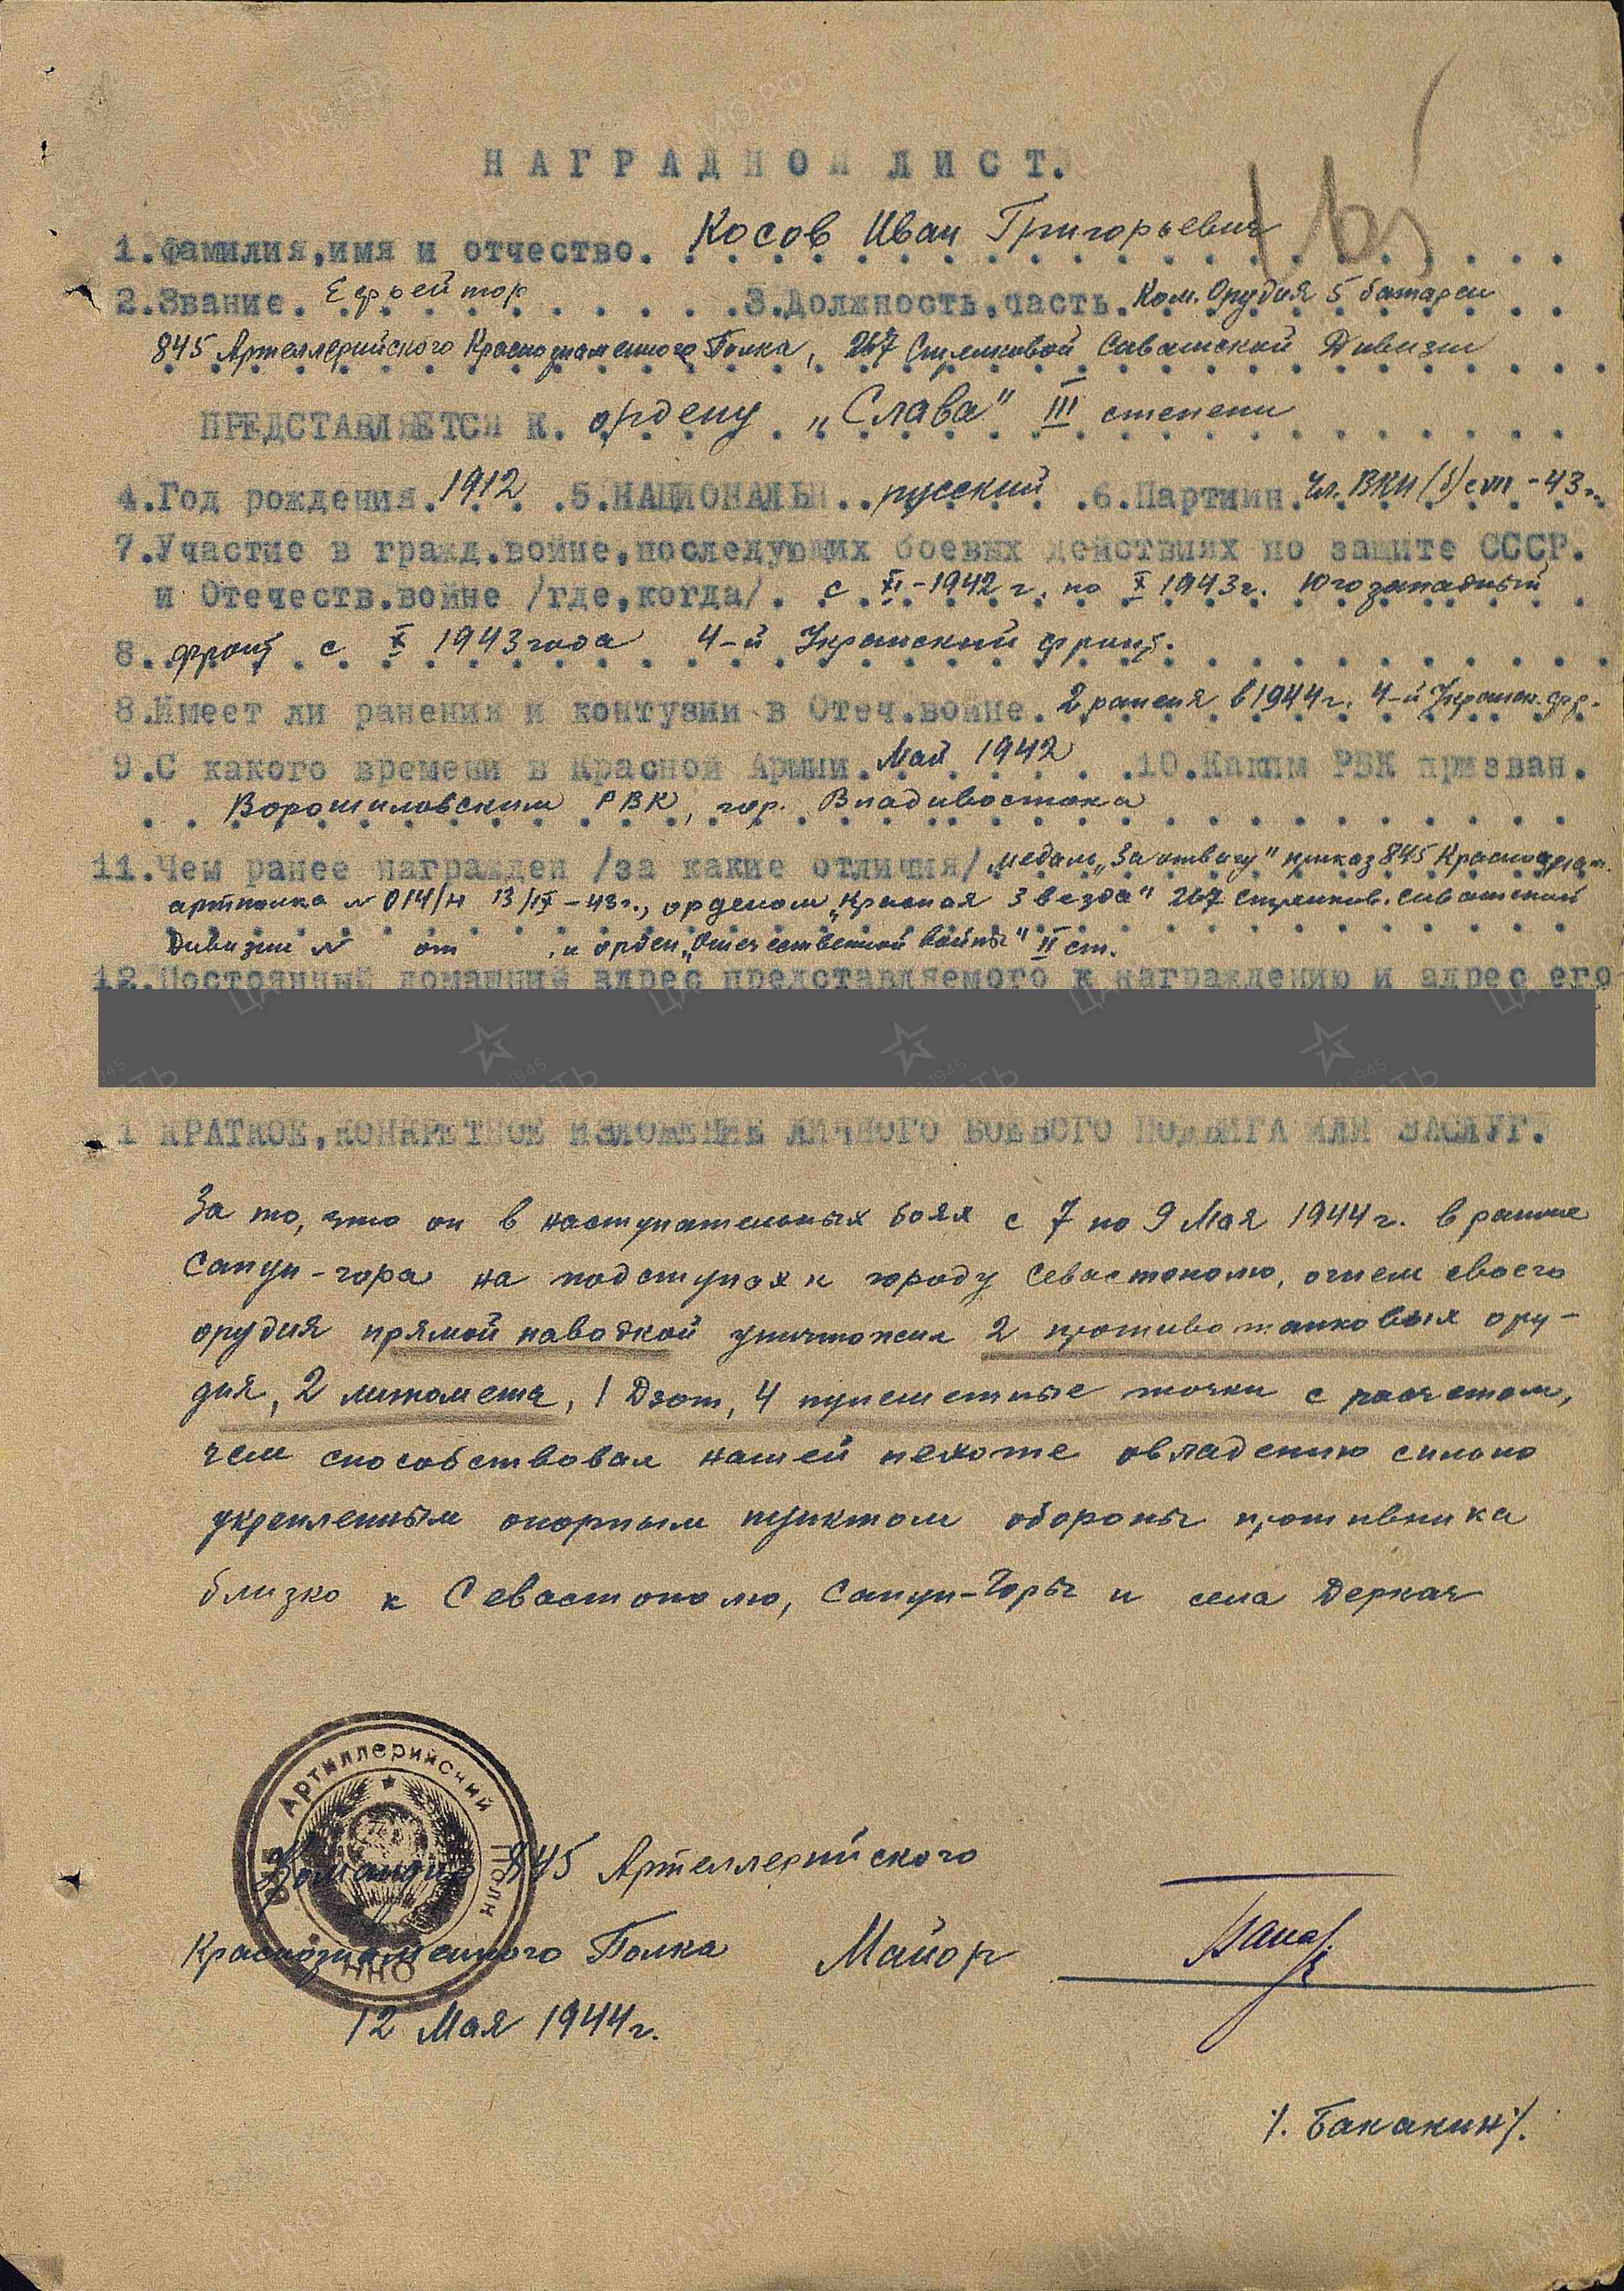 НАГРАДНОЙ ЛИСТ.
1.Фамилия,имя и отчество. Косов Иван Григорьевич
2.Звание. Ефрейтор 3.Должность,часть. Ком. Орудия 5 батареи
845 Артеллерийского Краснознаменного Полка, 267 Стрелковой Сивашской Дивизии
ПРЕДСТАВЛЯЕТСЯ К. ордену „Слава" III степени
4.Год рождения. 1912 5.НАЦИОНАЛЬН.. русский 6.Партийн. Чл. ВКП(б) с VIII-43г.
7.Участие в гражд.войне,последующих боевых действиях по защите СССР.
и Отечеств.войне /где,когда/. с XI-1942 г. по X 1943г. Юго западный
8. фронт с X 1943 года 4-й Украинский фронт.
8.Имеет ли ранения и контузии в Отеч.войне. 2 ранения в 1944 г. 4-й Украин. фр.
9.С какого времени в Красной Армии. Май 1942 10.Каким РВК призван.
Ворошиловским РВК, гор. Владивостока
11.Чем ранее награжден /за какие отличия/ медаль „За отвагу" приказ 845 Краснознам.
артполка № 014/н 13/IX-43г., орденом „Красная Звезда" 267 стрелков. сивашской
Дивизии № от , и орден „Отечественной войны" II ст.
12.Постоянный домашний адрес представляемого к награждению и адрес его
1 КРАТКОЕ,КОНКРЕТНОЕ ИЗЛОЖЕНИЕ ЛИЧНОГО БОЕВОГО ПОДВИГА ИЛИ ЗАСЛУГ.
За то, что он в наступательных боях с 7 по 9 Мая 1944 г. в районе
Сапун-гора на подступах к городу Севастополю, огнем своего
орудия прямой наводкой уничтожил 2 противотанковых ору-
дия, 2 миномета, 1 Дзот, 4 пулеметные точки с расчетом,
чем способствовал нашей пехоте овладению сильно
укрепленным опорным пунктом обороны противника
близко к Севастополю, Сапун-Горы и села Деркач
Артиллерийский Полк
НКО
Командир 845 Артеллерийского
Краснознаменного Полка Майор
12 Мая 1944г.
/. Баканин/.